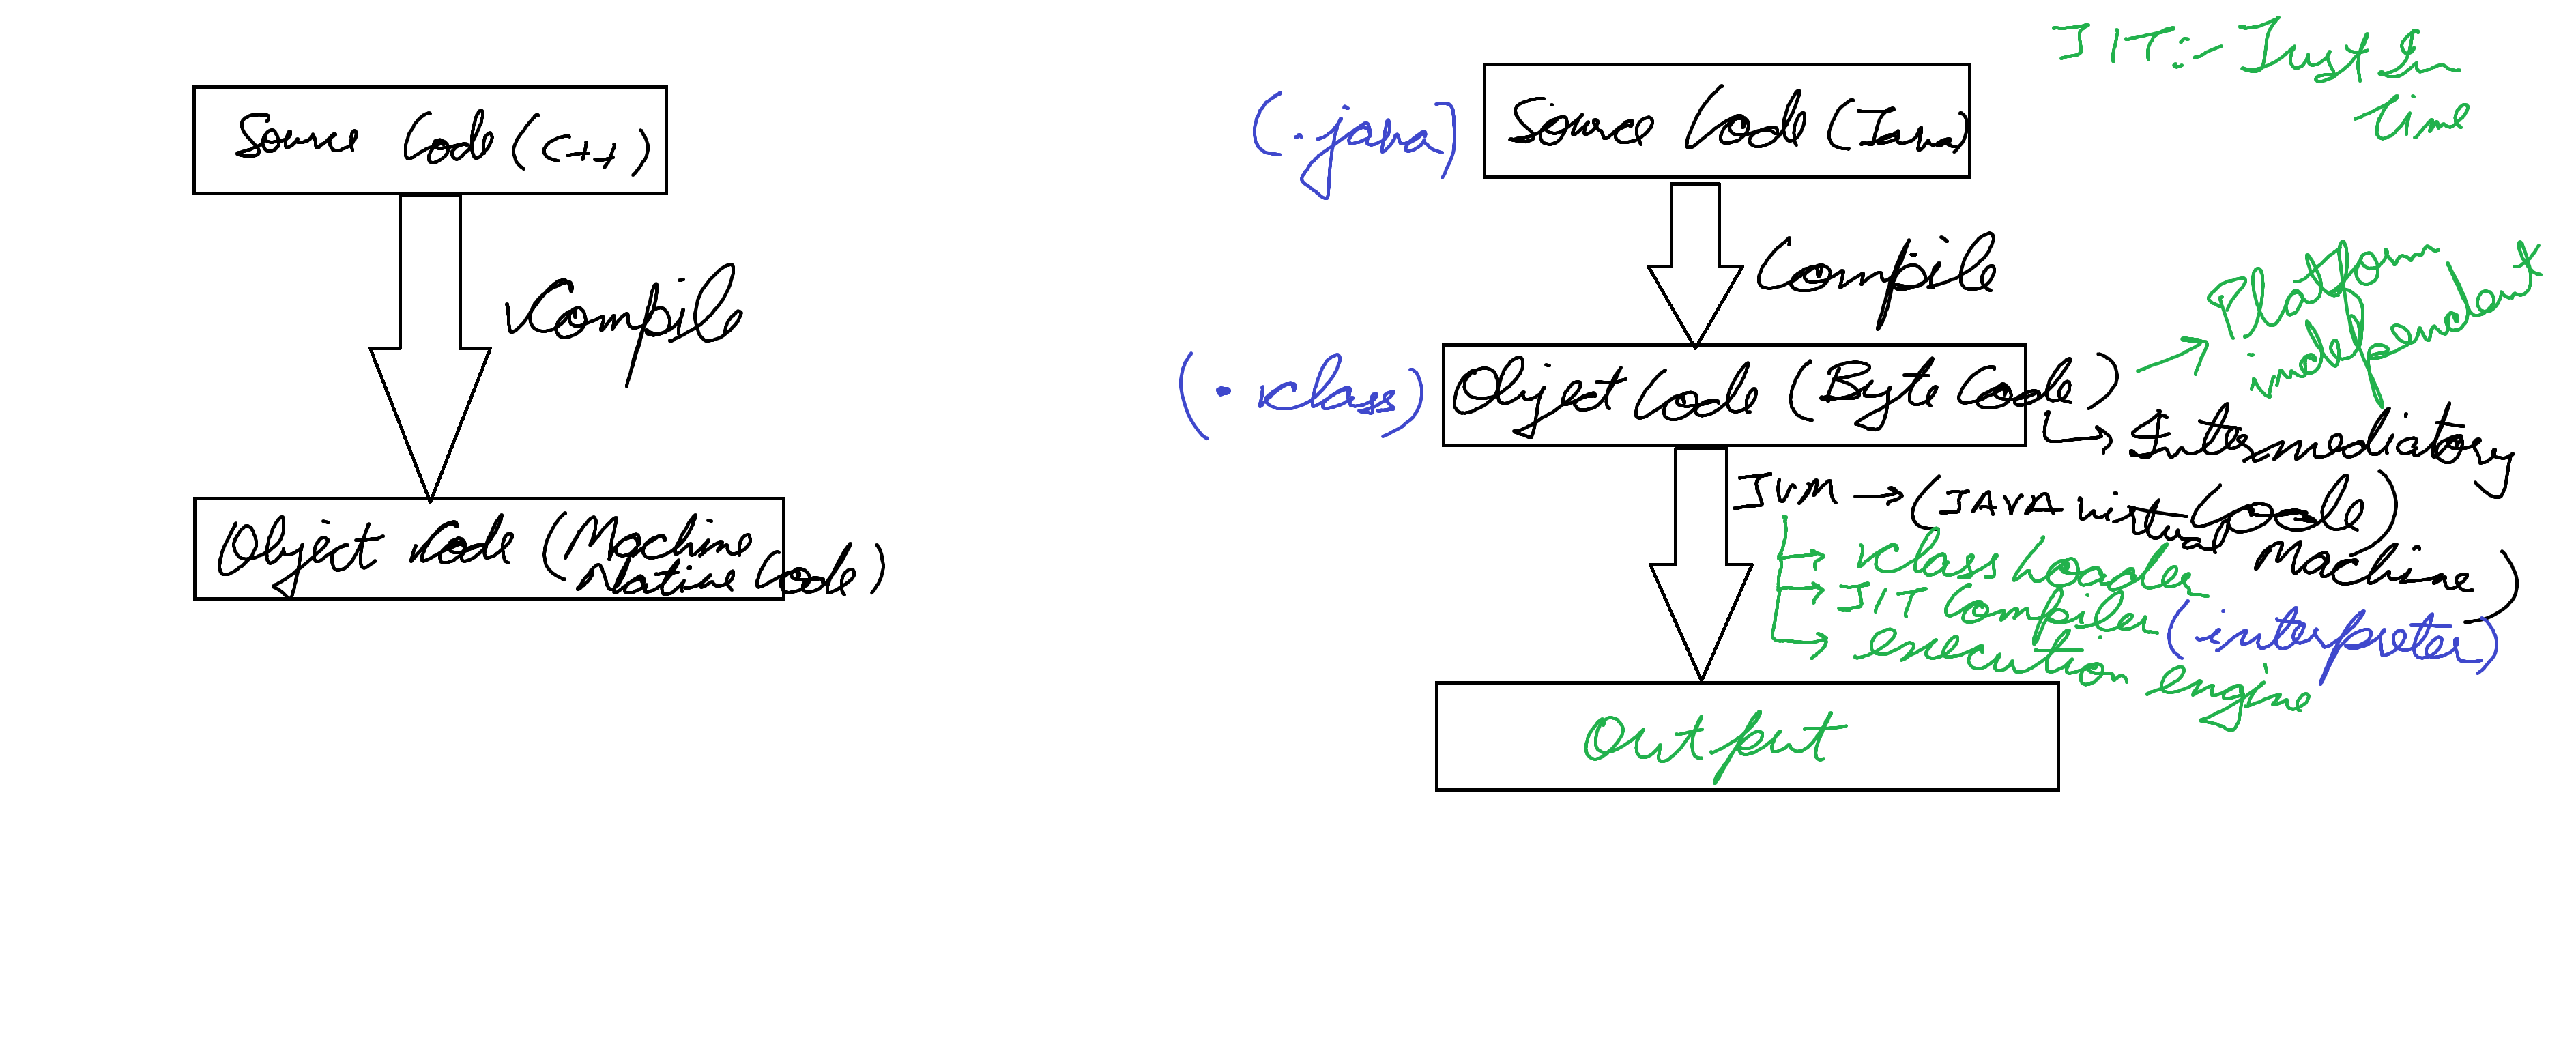 Source Code (C++)
Compile
Object Code (Machine
Native Code)
JIT:- Just In
time
(.java)
Source Code (Java)
Compile
Platform
independent
(.class)
Object Code (Byte Code)
Intermediatory
Code)
JVM → (JAVA virtual
Machine)
class Loader
JIT Compiler (interpreter)
execution engine
Output